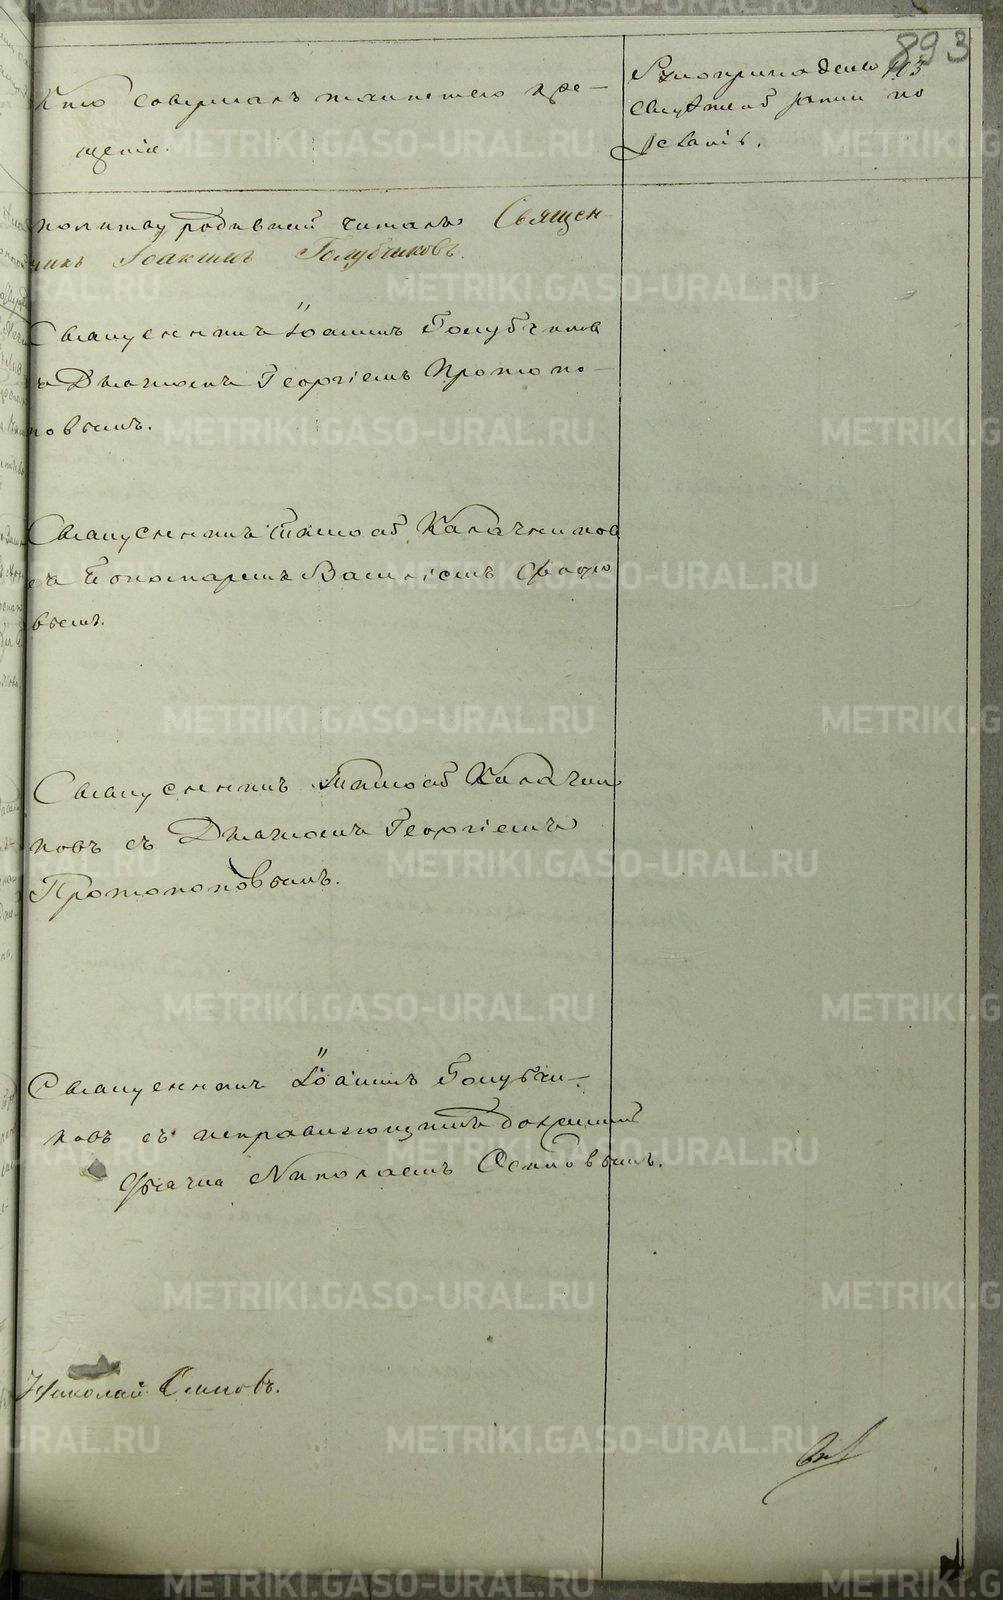 893
113
Кто совершалъ таинство кре-
щенiя.
Рукоприкладство
свидѣтелей записи по
желанiю.
молитву родившей читалъ Священ-
никъ Iоакимъ Голубчиковъ.
Священникъ Iоакимъ Голубчиков
съ Дьячкомъ Георгiемъ Протопо-
повымъ.
Священникъ Калачников
съ Пономаремъ Василiемъ
вымъ.
Священникъ Калачни
ковъ съ Дьячкомъ Георгiемъ
Протопоповымъ.
Священникъ Iоакимъ Голубчи-
ковъ съ исправляющимъ должность
дьячка Николаемъ Осиповымъ.
Николай Осиповъ.
METRIKI.GASO-URAL.RU